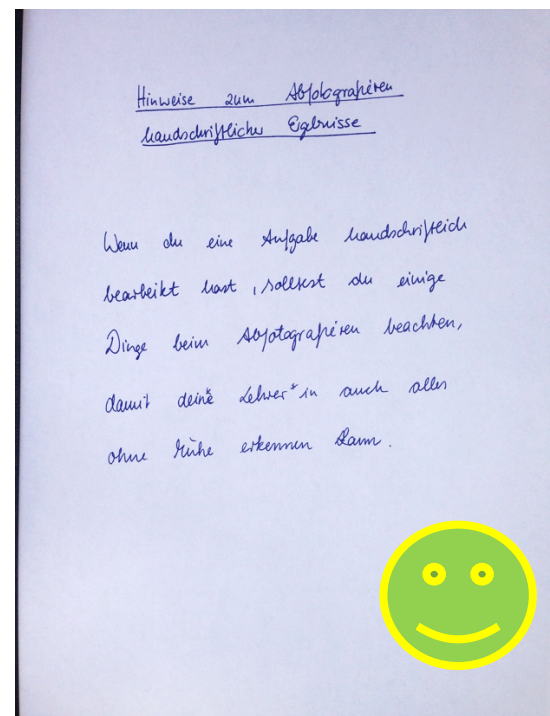 Hinweise zum Abfotografieren
handschriftlicher Ergebnisse
Wenn du eine Aufgabe handschriftlich
bearbeitet hast, solltest du einige
Dinge beim Abfotografieren beachten,
damit deine* Lehrer*in auch alles
ohne Mühe erkennen kann.